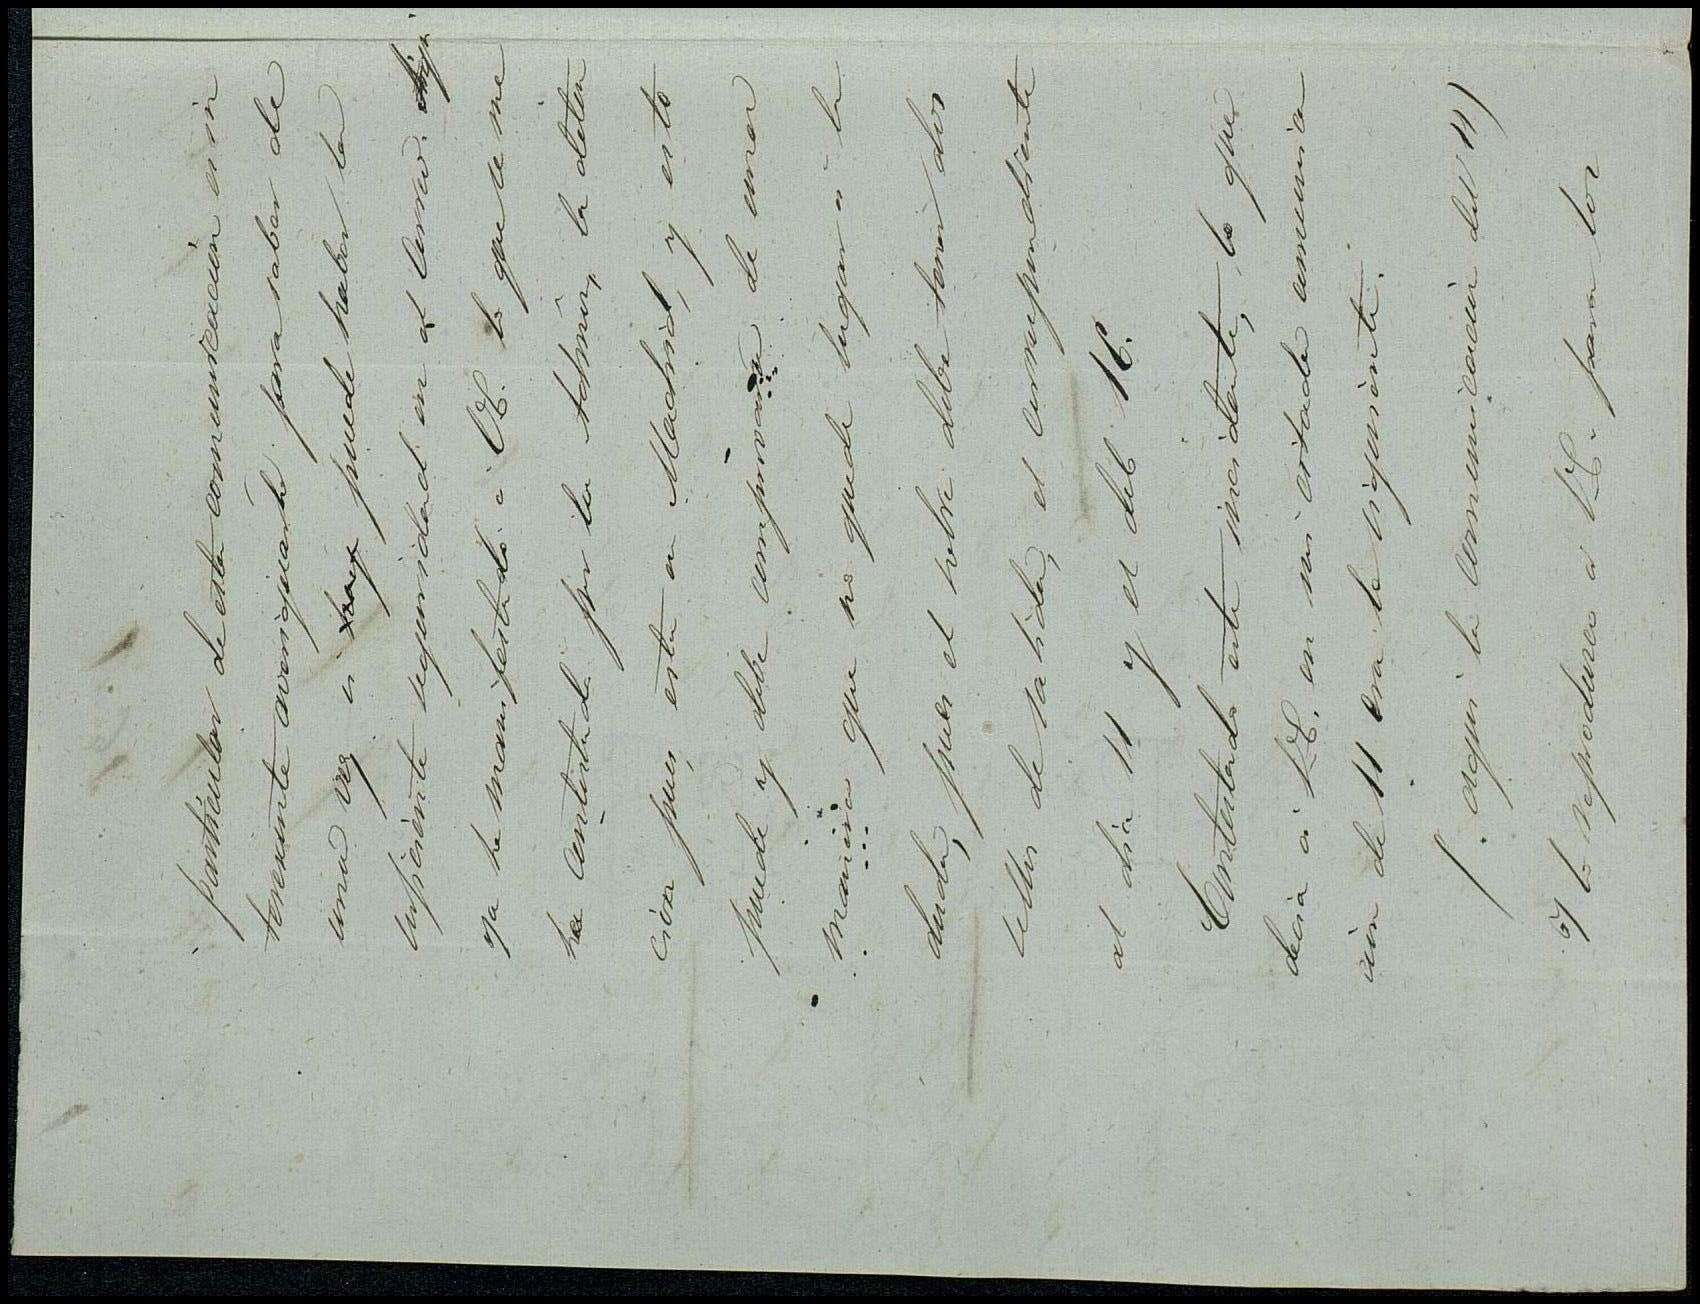 particular de esta comunicacion es in
teresante averiguarlo para saber de
una vez si puede haber la
suficiente seguridad en el Correo.
ya he manifestado á VE. lo que se me
ha contestado por la Admon, la deten
cion pues, está en Madrid, y esto
puede y debe comprovarse de una
manera que no quede lugar á la
duda, pues el sobre debe tener dos
sellos de salida, el correspondiente
al dia 11 y el del 16.
Contestado este incidente, lo que
decia á VE. en mi citada comunica
cion de 11 era lo siguiente.
(aqui la comunicacion del 11)
y lo reproduzco á VE. para los